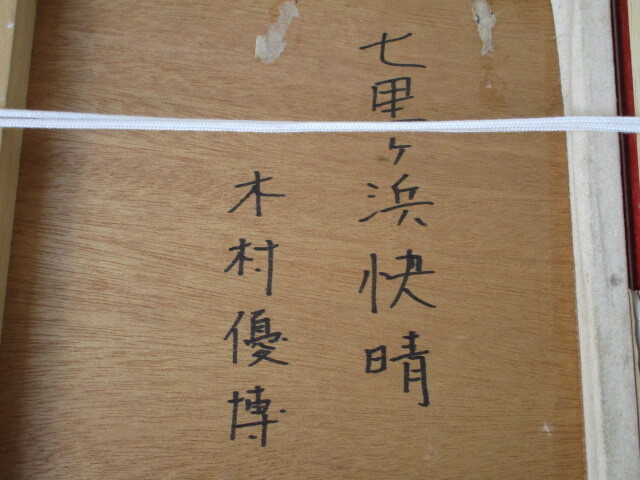 七里ヶ浜快晴
木村優博